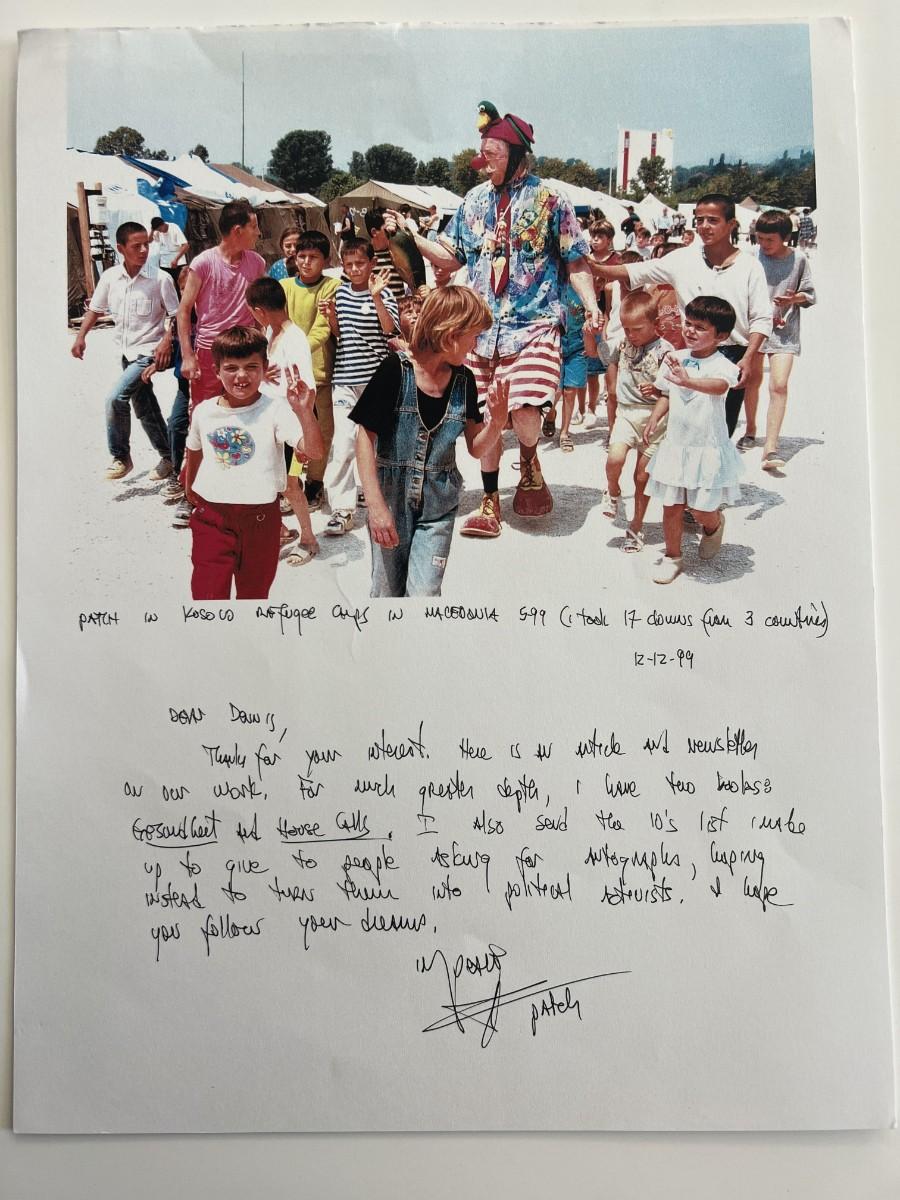 PATCH IN KOSOVO REFUGEE CAMPS IN MACEDONIA 5-99 (I took 17 clowns from 3 countries)
12-12-99
DEAR Dennis,
Thanks for your interest. Here is an article and newsletter
on our work. For much greater depth, I have two books:
Gesundheit and House Calls. I also send the 10's list I make
up to give to people asking for autographs, hoping
instead to turn them into political activists. I hope
you follow your dreams.
IN PEACE
patch